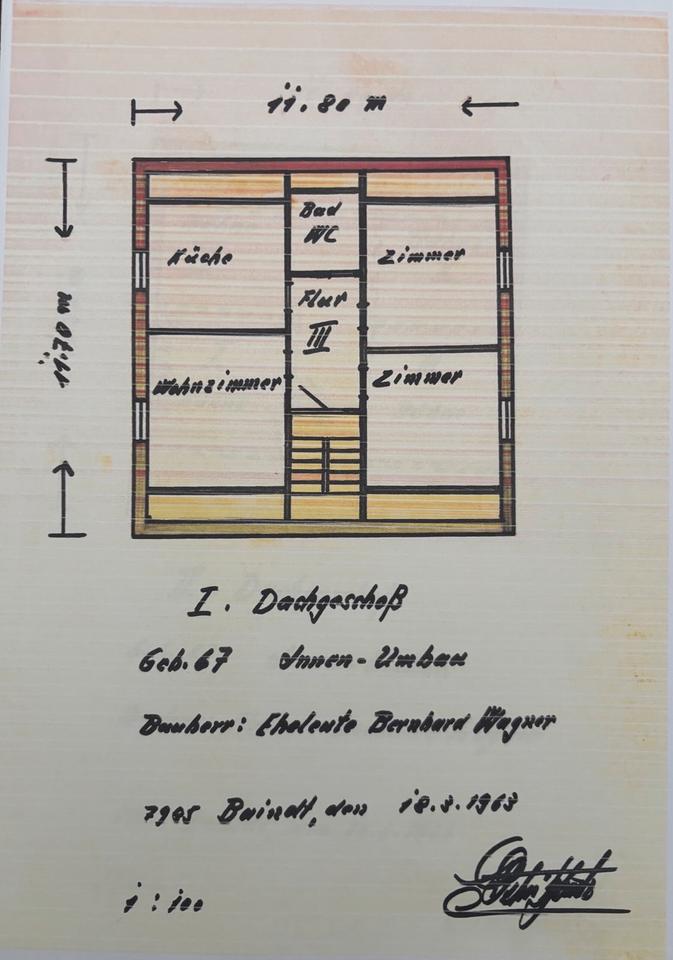 11.80 m
11.70 m
Bad
WC
Küche
Zimmer
Flur
III
Wohnzimmer
Zimmer
I. Dachgeschoß
Geb. 67 Innen-Umbau
Bauherr: Eheleute Bernhard Wagner
Baindt, den 18.3.1963
1:100